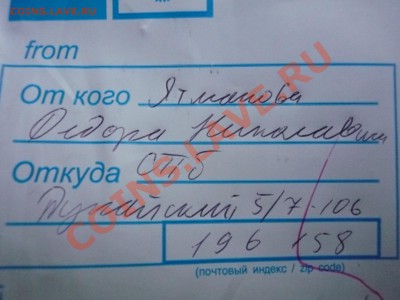 COINS.LAVE.RU
from
От кого Ятманова
Федора Николаевича
Откуда СПб
Дунайский 5/7-106
196 158
(почтовый индекс / zip code)
COINS.LAVE.RU